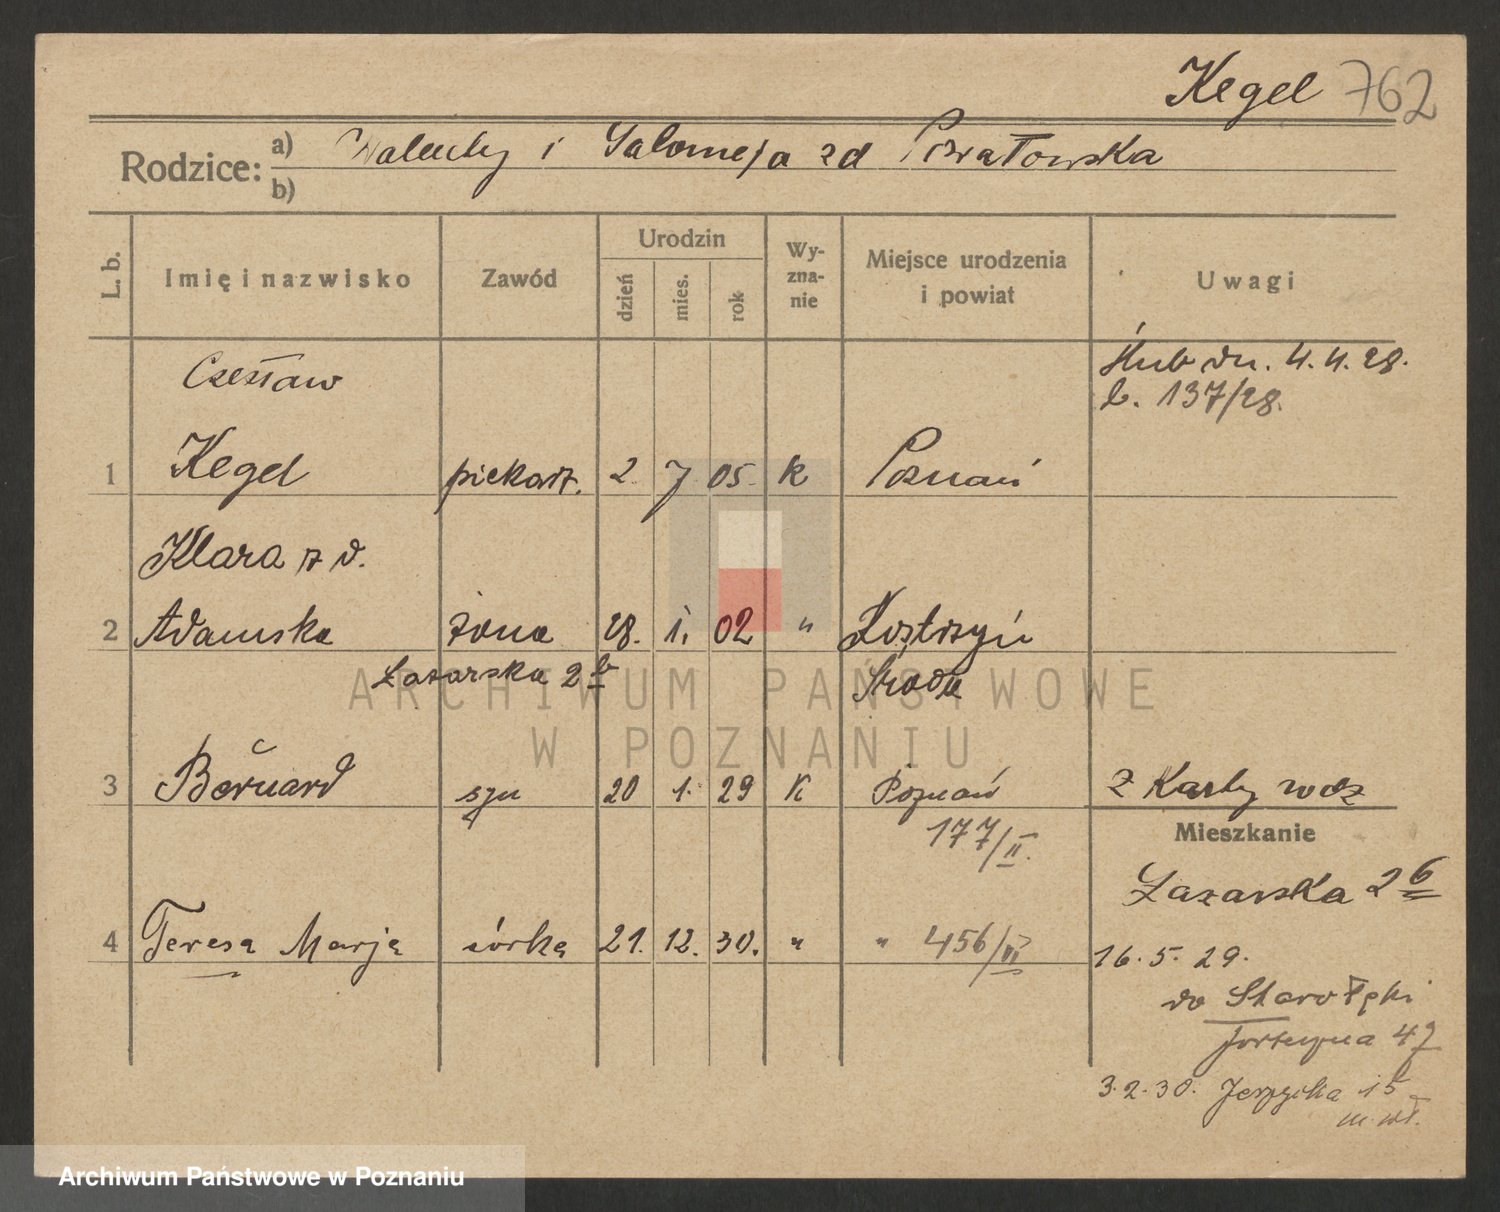 Kegel 762
Rodzice: a) Walenty i Salomeja zd Piwałowska
b)
L. b. Imię i nazwisko Zawód Urodzin dzień mies. rok Wy-zna-nie Miejsce urodzenia i powiat Uwagi
Czesław
ślub dn. 4.4.28.
L. 137/28.
1 Kegel piekarz. 2. 7 05. k Poznań
Klara z d.
2 Adamska żona 28. 1. 02 " Kostrzyń
Łazarska 2b Środa
3 Bernard syn 20 1. 29 K Poznań z Karty
177/II.
Mieszkanie
Łazarska 2b
4 Teresa Marja córka 21. 12. 30. " " 456/VI
16.5.29.
do Starołęki
Forteczna 47
3.2.30. 15
m. wł.
ARCHIWUM PAŃSTWOWE
W POZNANIU
Archiwum Państwowe w Poznaniu